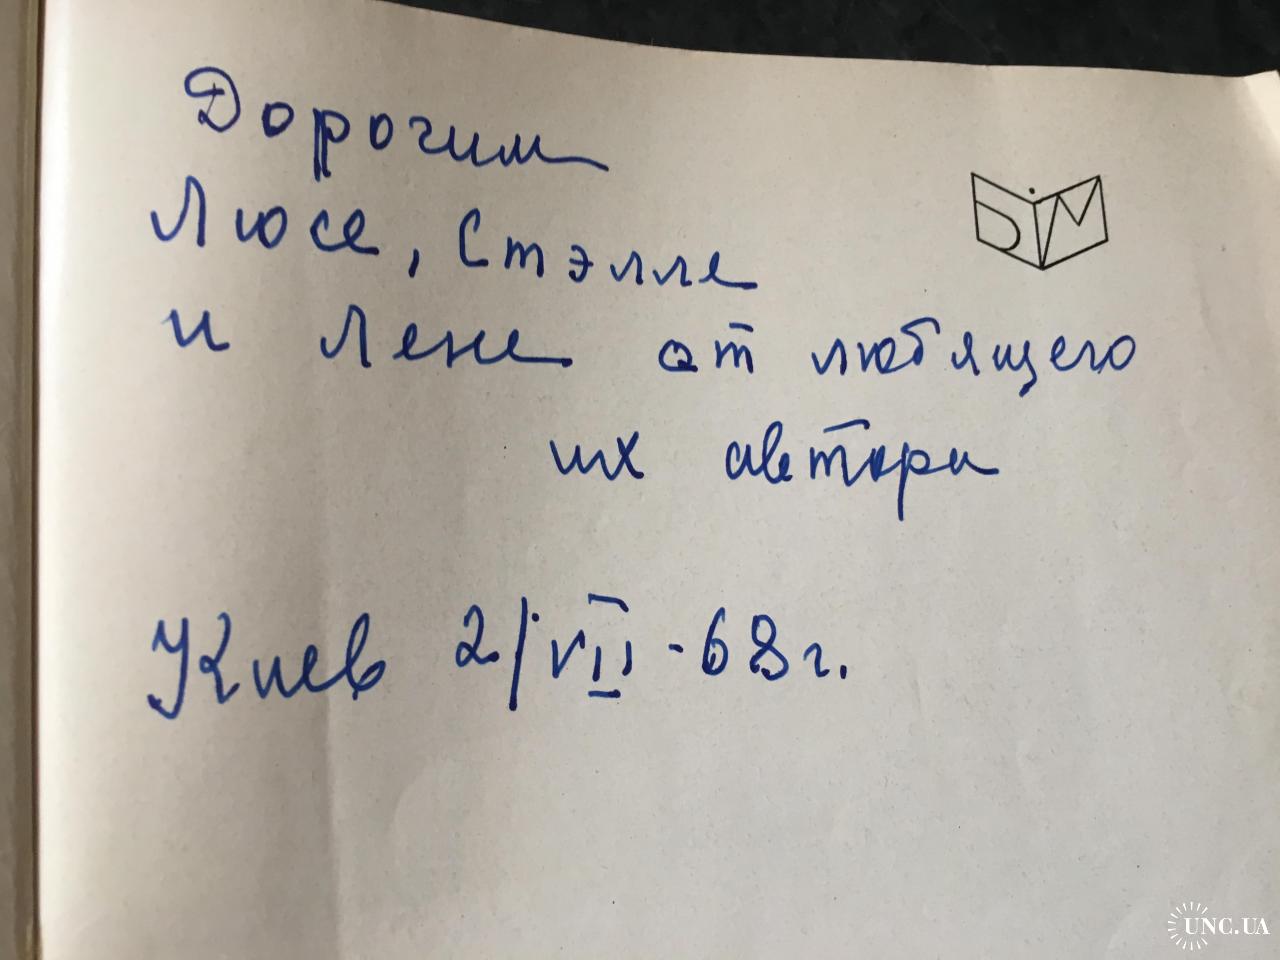 Дорогим
Люсе, Стэлле
и Лене от любящего
их автора
Киев 2/VII-68г.
UNC.UA